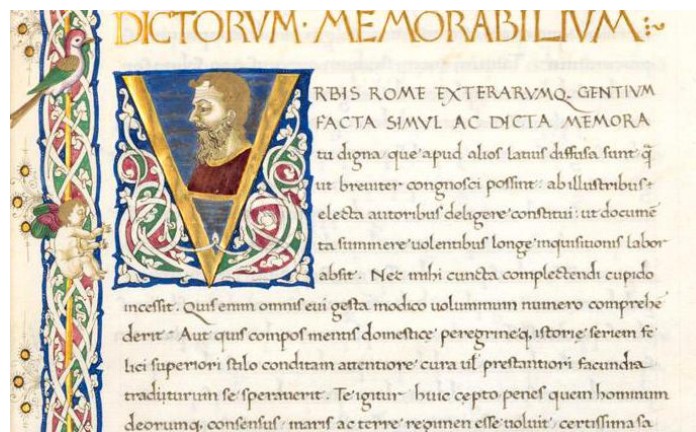 DICTORVM · MEMORABILIVM :~
VRBIS ROME EXTERARVMQ. GENTIVM
FACTA SIMVL AC DICTA MEMORA
tu digna que apud alios latius diffusa sunt: q̃
ut breuiter congnosci possint: ab illustribus
electa autoribus deligere constitui: ut documẽ
ta summere uolentibus longe inquisitionis labor
absit. Nec mihi cuncta complectendi cupido
incessit. Quis enim omnis eui gesta modico uoluminum numero comprehe
derit. Aut quis compos mentis domestice peregrineq. istorie seriem fe
lici superiori stilo conditam attentiore cura ul̃ prestantiori facundia
traditurum se sperauerit. Te igitur huic cepto penes quem hominum
deorumq. consensus maris ac terre regimen esse uoluit: certissima sa